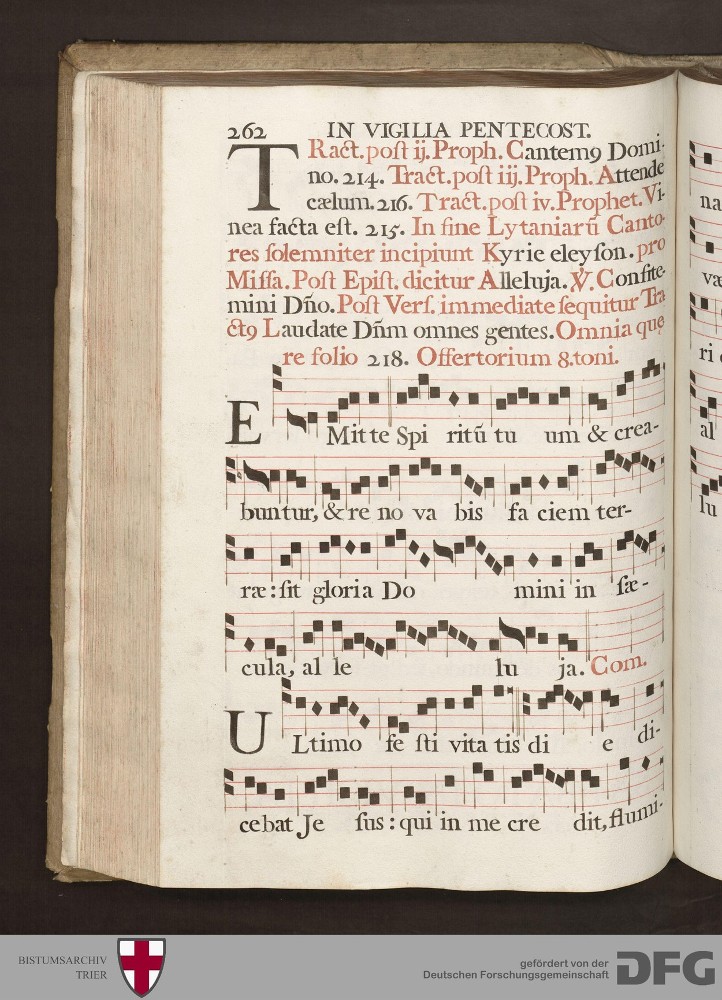 262 IN VIGILIA PENTECOST.
TRact. post ij. Proph. Cantem9 Domi-
no. 214. Tract. post iij. Proph. Attende
cælum. 216. Tract. post iv. Prophet. Vi-
nea facta est. 215. In fine Lytaniarũ Canto-
res solemniter incipiunt Kyrie eleyson. pro
Missa. Post Epist. dicitur Alleluja. ℣. Confite-
mini Dño. Post Vers. immediate sequitur Tra-
ct9 Laudate Dñm omnes gentes. Omnia quę-
re folio 218. Offertorium 8. toni.
EMitte Spi ritũ tu um & crea-
buntur, & re no va bis fa ciem ter-
ræ: sit gloria Do mini in sæ-
cula, al le lu ja. Com.
ULtimo fe sti vita tis di e di-
cebat Je sus: qui in me cre dit, flumi-
na
væ
ri
al
lu
BISTUMSARCHIV
TRIER
gefördert von der
Deutschen Forschungsgemeinschaft
DFG